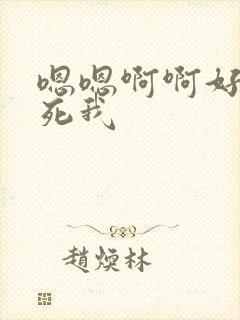 嗯嗯啊啊好
死我
趙煐林